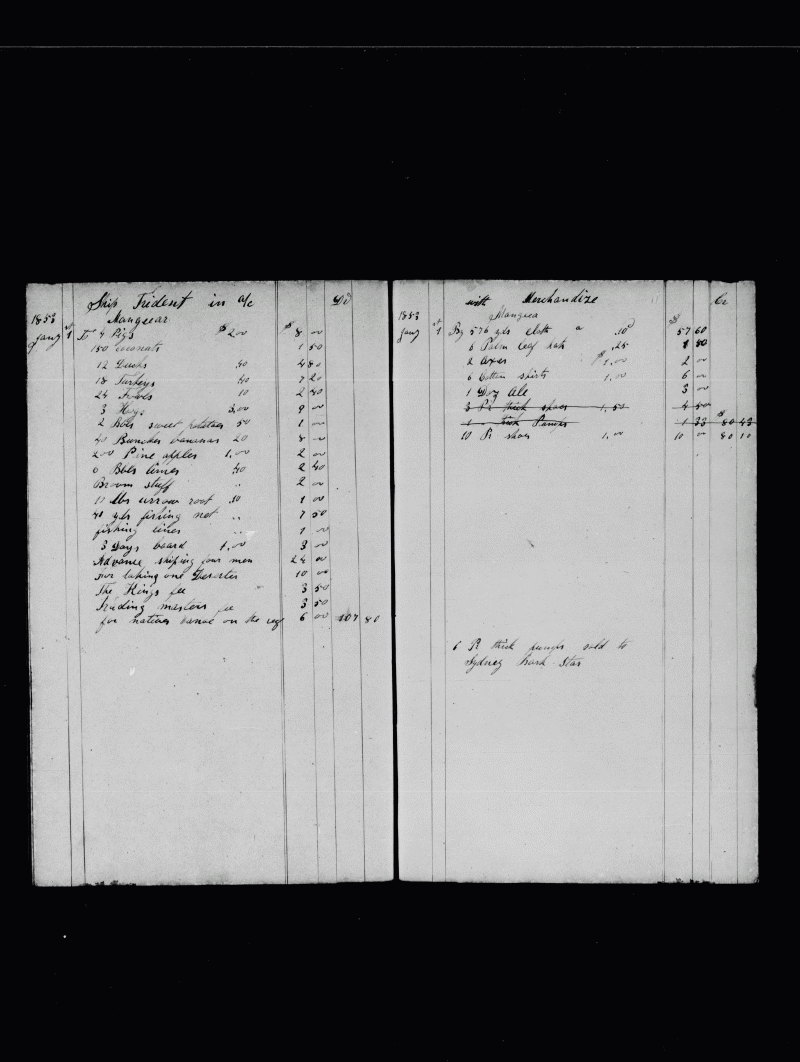 Ship Trident in a/c Dr
1853 Mangeear
Jany 1st To 4 Pigs $2,00 $8 00
150 Coconuts 1 50
12 Ducks 40 4 80
18 Turkeys 40 7 20
24 Fowls 10 2 40
3 Hogs 3,00 9 00
2 Bbls sweet potatoes 50 1 00
40 Bunches bananas 20 8 00
200 Pine apples 1,00 2 00
6 Bbls limes 40 2 40
Broom stuff .. 2 00
10 lbs arrow root 10 1 00
40 yds fishing net .. 7 50
fishing lines .. 1 00
3 Days board 1,00 3 00
Advance shiping four men 24 00
For taking one Deserter 10 00
The Kings fee 3 50
Trading masters fee 3 50
for natives canoe on the reef 6 00 107 80
with Merchandize Cr
1853 Mangea
Jany 1st By 576 yds cloth a 10 $57 60
6 Palm leaf hats ,25 1 50
2 Axes $1,00 2 00
6 Cotton shirts 1,00 6 00
1 Doz Ale 3 00
3 Pr thick shoes 1,50 4 50
1 - thick Pumps 1 33 $80 43
10 Pr shoes 1,00 10 00 80 10
6 Pr thick pumps sold to
Sydney Bark Star